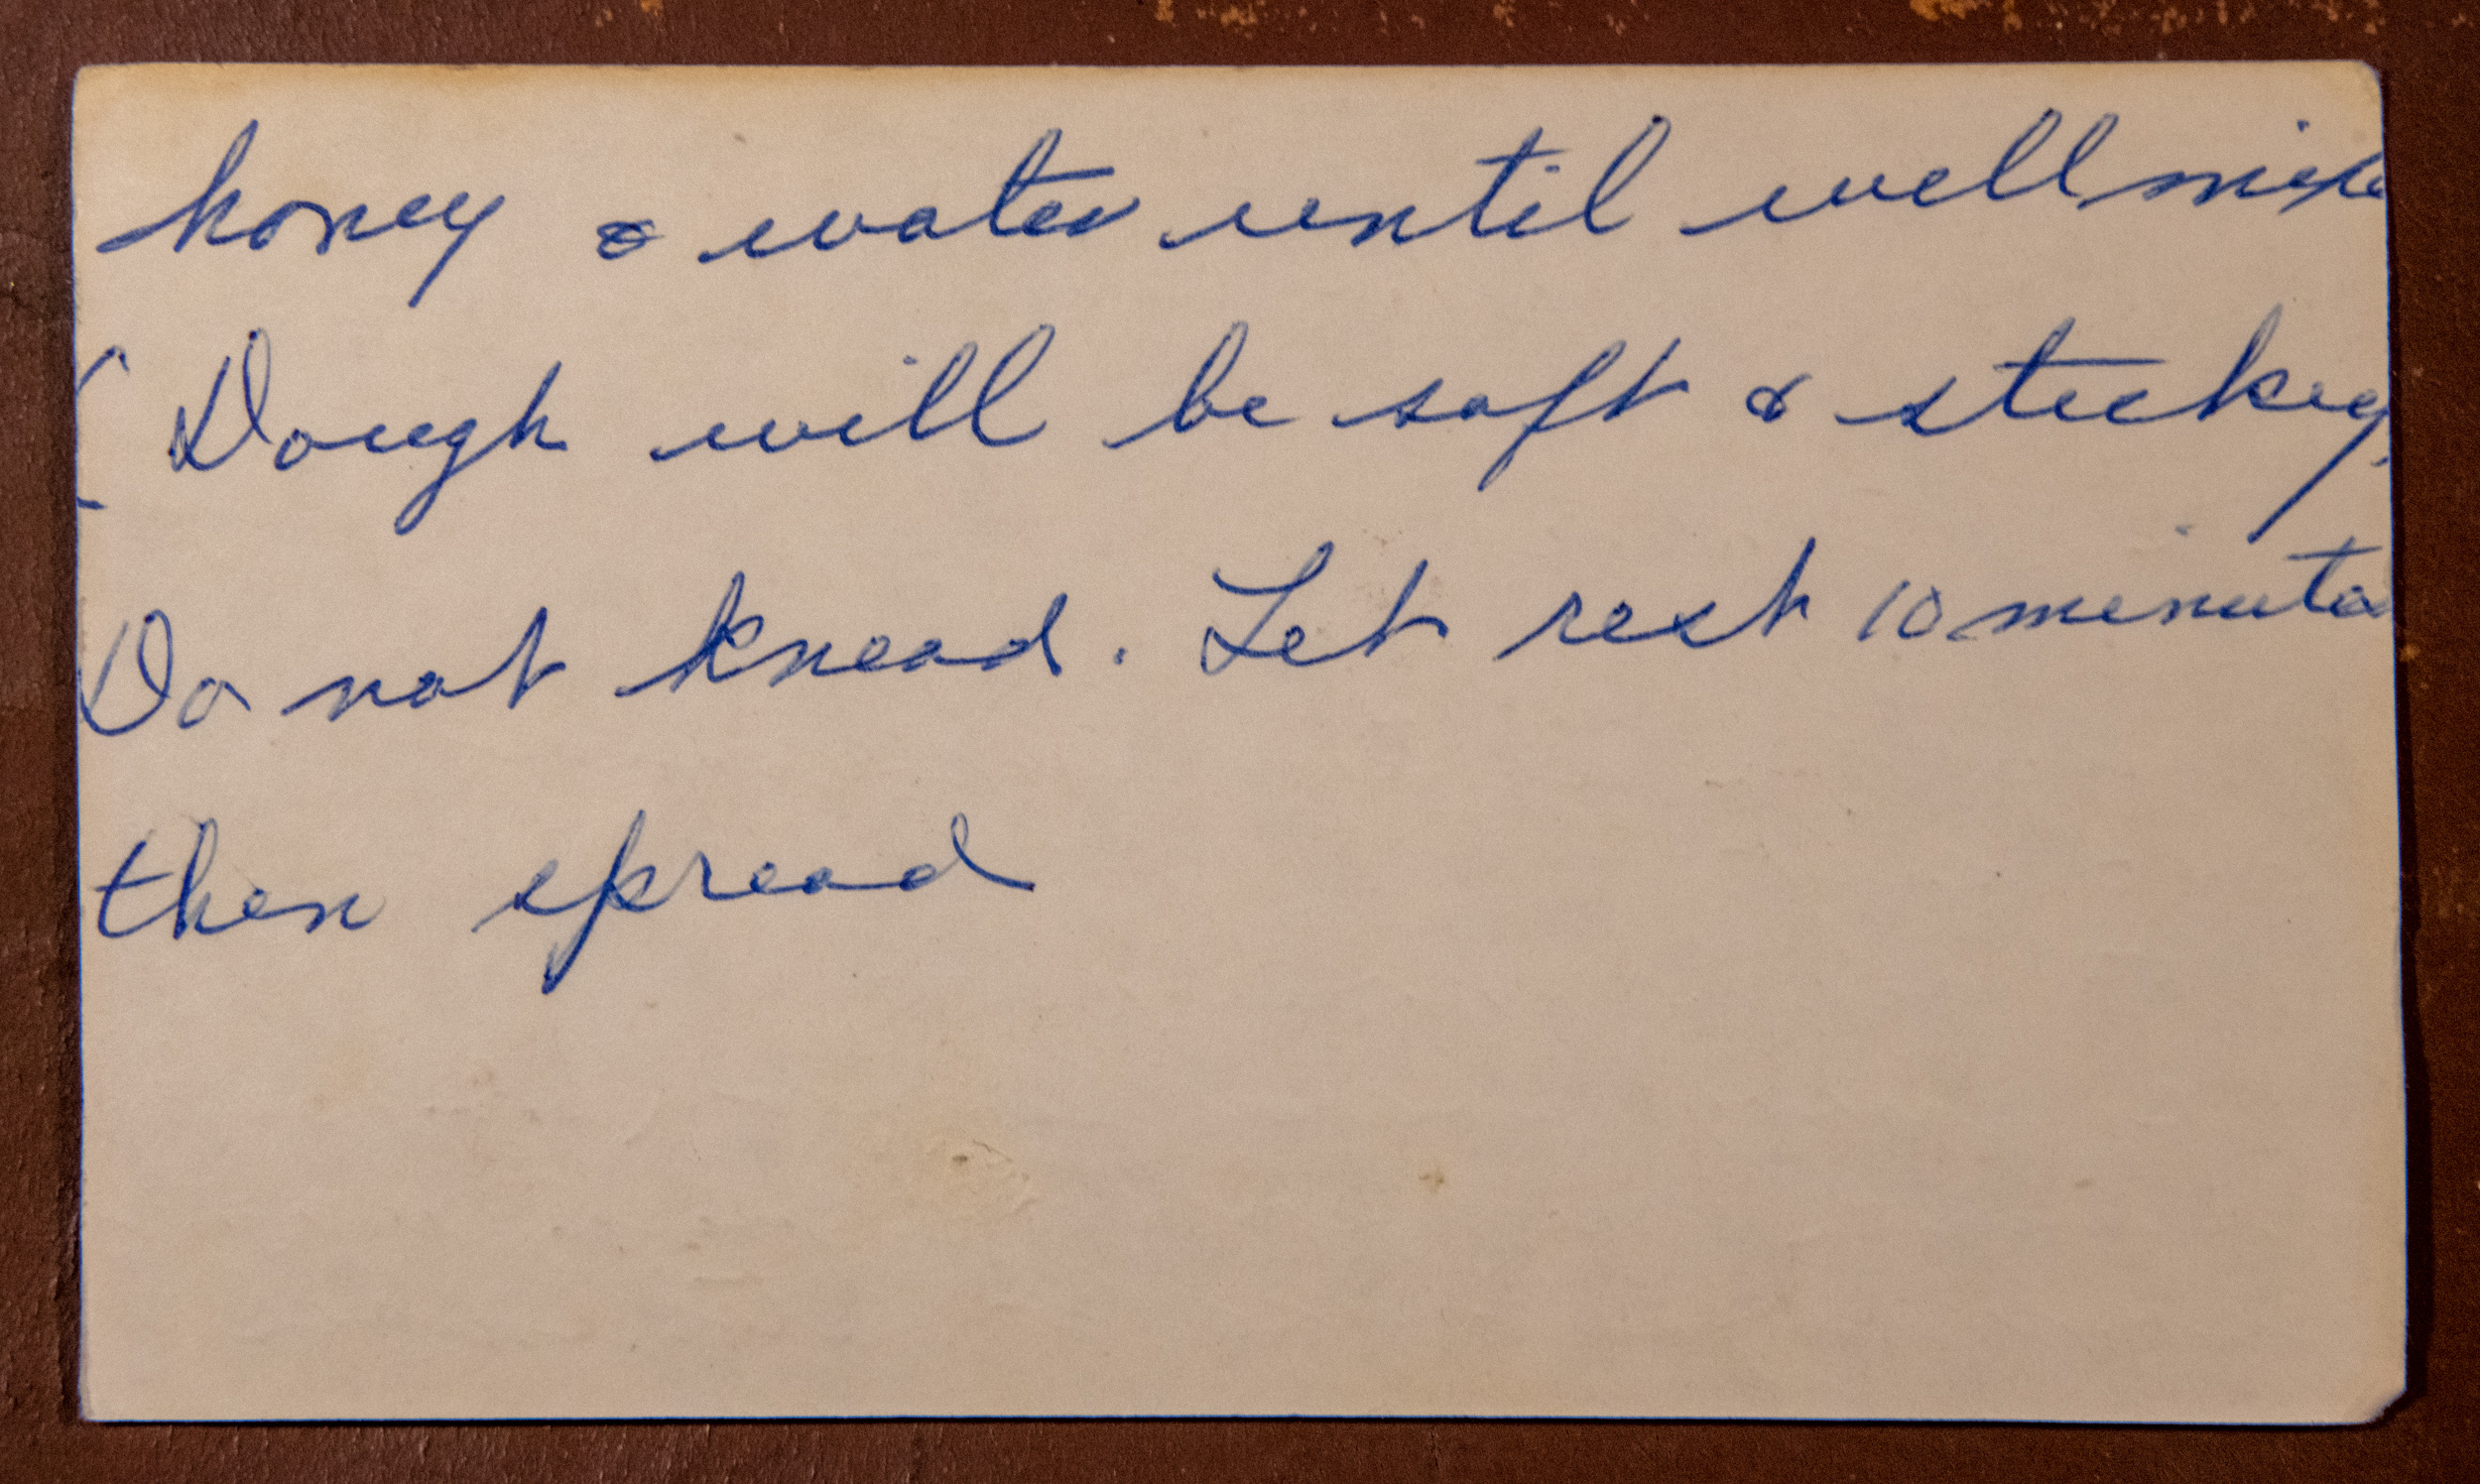 honey & water until well mixe
( Dough will be soft & stickey
Do not knead. Let rest 10 minute
then spread